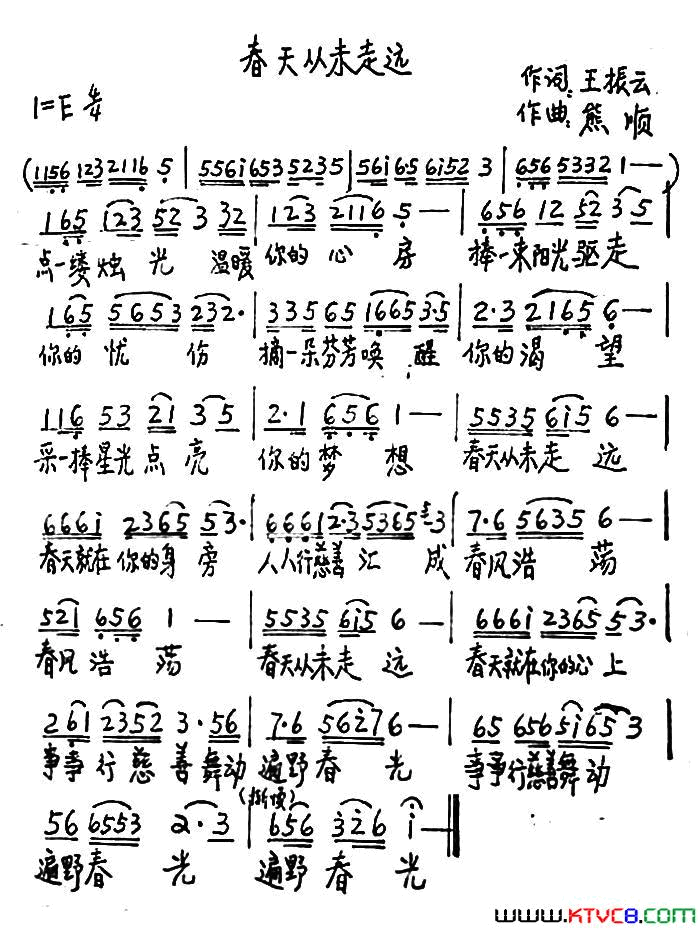 春天从未走远
作词:王振云
作曲:熊顺
1=E 4/4
(1156 123 2116 5 | 556i 653 5235 | 56i 6·5 6i52 3 | 656 5332 1 — )
165 123 52 3 32 | 123 2116 5 — | 656 12 52 3 5
点一缕烛光 温暖你的心房 捧一束阳光驱走
165 5653 232· | 335 65 1665 3·5 | 2·3 2165 6 —
你的忧伤 摘一朵芬芳唤醒 你的渴望
116 53 21 3 5 | 2·1 656 1 — | 5535 6i5 6 —
采一捧星光点亮 你的梦想 春天从未走远
666i 2365 53· | 6661 2·3 5365 3 | 7·6 5635 6 —
春天就在你的身旁 人人行慈善汇成 春风浩荡
521 656 1 — | 5535 6i5 6 — | 666i 2365 53·
春风浩荡 春天从未走远 春天就在你的心上
261 2352 3·56 | 7·6 56i7 6 — | 65 656 5i65 3
事事行慈善舞动 遍野春光 事事行慈善舞动
(渐慢)
56 6553 2·3 | 656 326 i — ||
遍野春光 遍野春光
WWW.KTVC8.COM